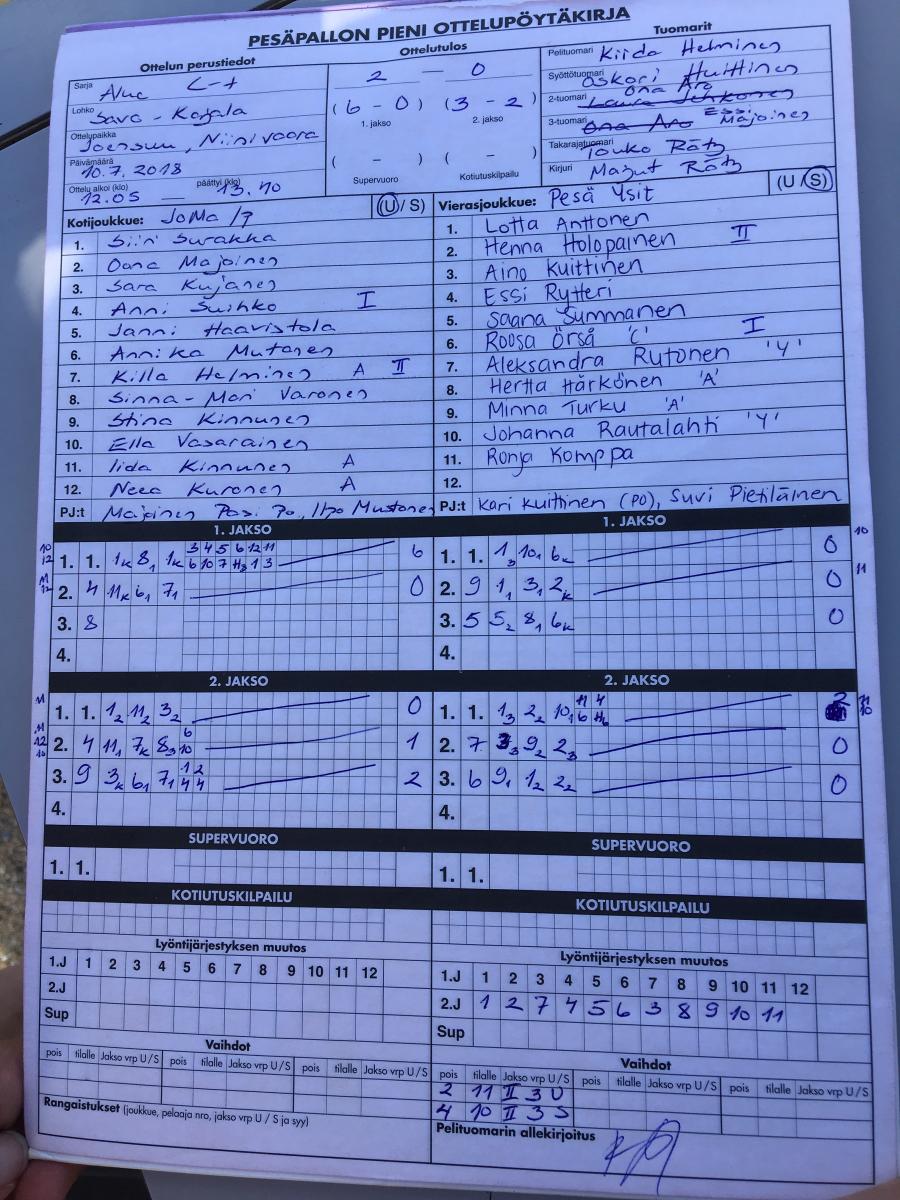 PESÄPALLON PIENI OTTELUPÖYTÄKIRJA
Ottelun perustiedot
Sarja Alue C-t
Lohko Savo - Karjala
Ottelupaikka Joensuu, Niinivaara
Päivämäärä 10.7.2018
Ottelu alkoi (klo) 12.05 — päättyi (klo) 13.40
Ottelutulos
2 — 0
(6 - 0) (3 - 2)
1. jakso 2. jakso
( - ) ( - )
Supervuoro Kotiutuskilpailu
Tuomarit
Pelituomari Kiida Helminen
Syöttötuomari Oskari Huittinen
2-tuomari Ona Aro
3-tuomari Ona Aro Essi Majoinen
Takarajatuomari Touko Rätz
Kirjuri Mazut Rätz
Kotijoukkue: JoMa /? (U / S)
1. Siiri Surakka
2. Oona Majoinen
3. Sara Kujanen
4. Anni Suihko I
5. Janni Haavistola
6. Annika Mutanen
7. Killa Helminen A II
8. Sinna-Mari Varonen
9. Stina Kinnunen
10. Ella Vasarainen
11. Iida Kinnunen A
12. Neea Kuronen A
PJ:t Majoinen Pasi Po, Ilpo Mustonen
Vierasjoukkue: Pesä Ysit (U / S)
1. Lotta Anttonen
2. Henna Holopainen II
3. Aino Kuittinen
4. Essi Rytteri
5. Saana Summanen
6. Roosa Örså 'C' I
7. Aleksandra Rutonen 'Y'
8. Hertta Härkönen 'A'
9. Minna Turku 'A'
10. Johanna Rautalahti 'Y'
11. Ronja Komppa
12.
PJ:t Kari Kuittinen (PO), Suvi Pietiläinen
1. JAKSO
1. 1. 1k 8, 1k 3 4 5 6 12 11 6
6 10 7 H3 1 3
2. 4 11k 6, 7, 0
3. 8
4.
1. JAKSO
1. 1. 1 3 10, 6k 0
2. 9 1, 3, 2k 0
3. 5 5 2 8, 6k 0
4.
2. JAKSO
1. 1. 1 2 11 2 3 2 0
2. 4 11, 7k 8 3 6 10 1
3. 9 3k 6, 7, 1 2 4 4 2
4.
2. JAKSO
1. 1. 1 3 2 2 10, 11 4 2
2. 7 3 3 9 2 2 3 0
3. 6 9, 1 2 2 2 0
4.
SUPERVUORO
1. 1.
SUPERVUORO
1. 1.
KOTIUTUSKILPAILU
KOTIUTUSKILPAILU
Lyöntijärjestyksen muutos
1.J 1 2 3 4 5 6 7 8 9 10 11 12
2.J
Sup
Lyöntijärjestyksen muutos
1.J 1 2 3 4 5 6 7 8 9 10 11 12
2.J 1 2 7 4 5 6 3 8 9 10 11
Sup
Vaihdot
pois tilalle Jakso vrp U/S pois tilalle Jakso vrp U/S pois tilalle Jakso vrp U/S
Rangaistukset (joukkue, pelaaja nro, jakso vrp U / S ja syy)
Vaihdot
pois tilalle Jakso vrp U/S pois tilalle Jakso vrp U/S pois tilalle Jakso vrp U/S
2 11 II 3 U
4 10 II 3 S
Pelituomarin allekirjoitus